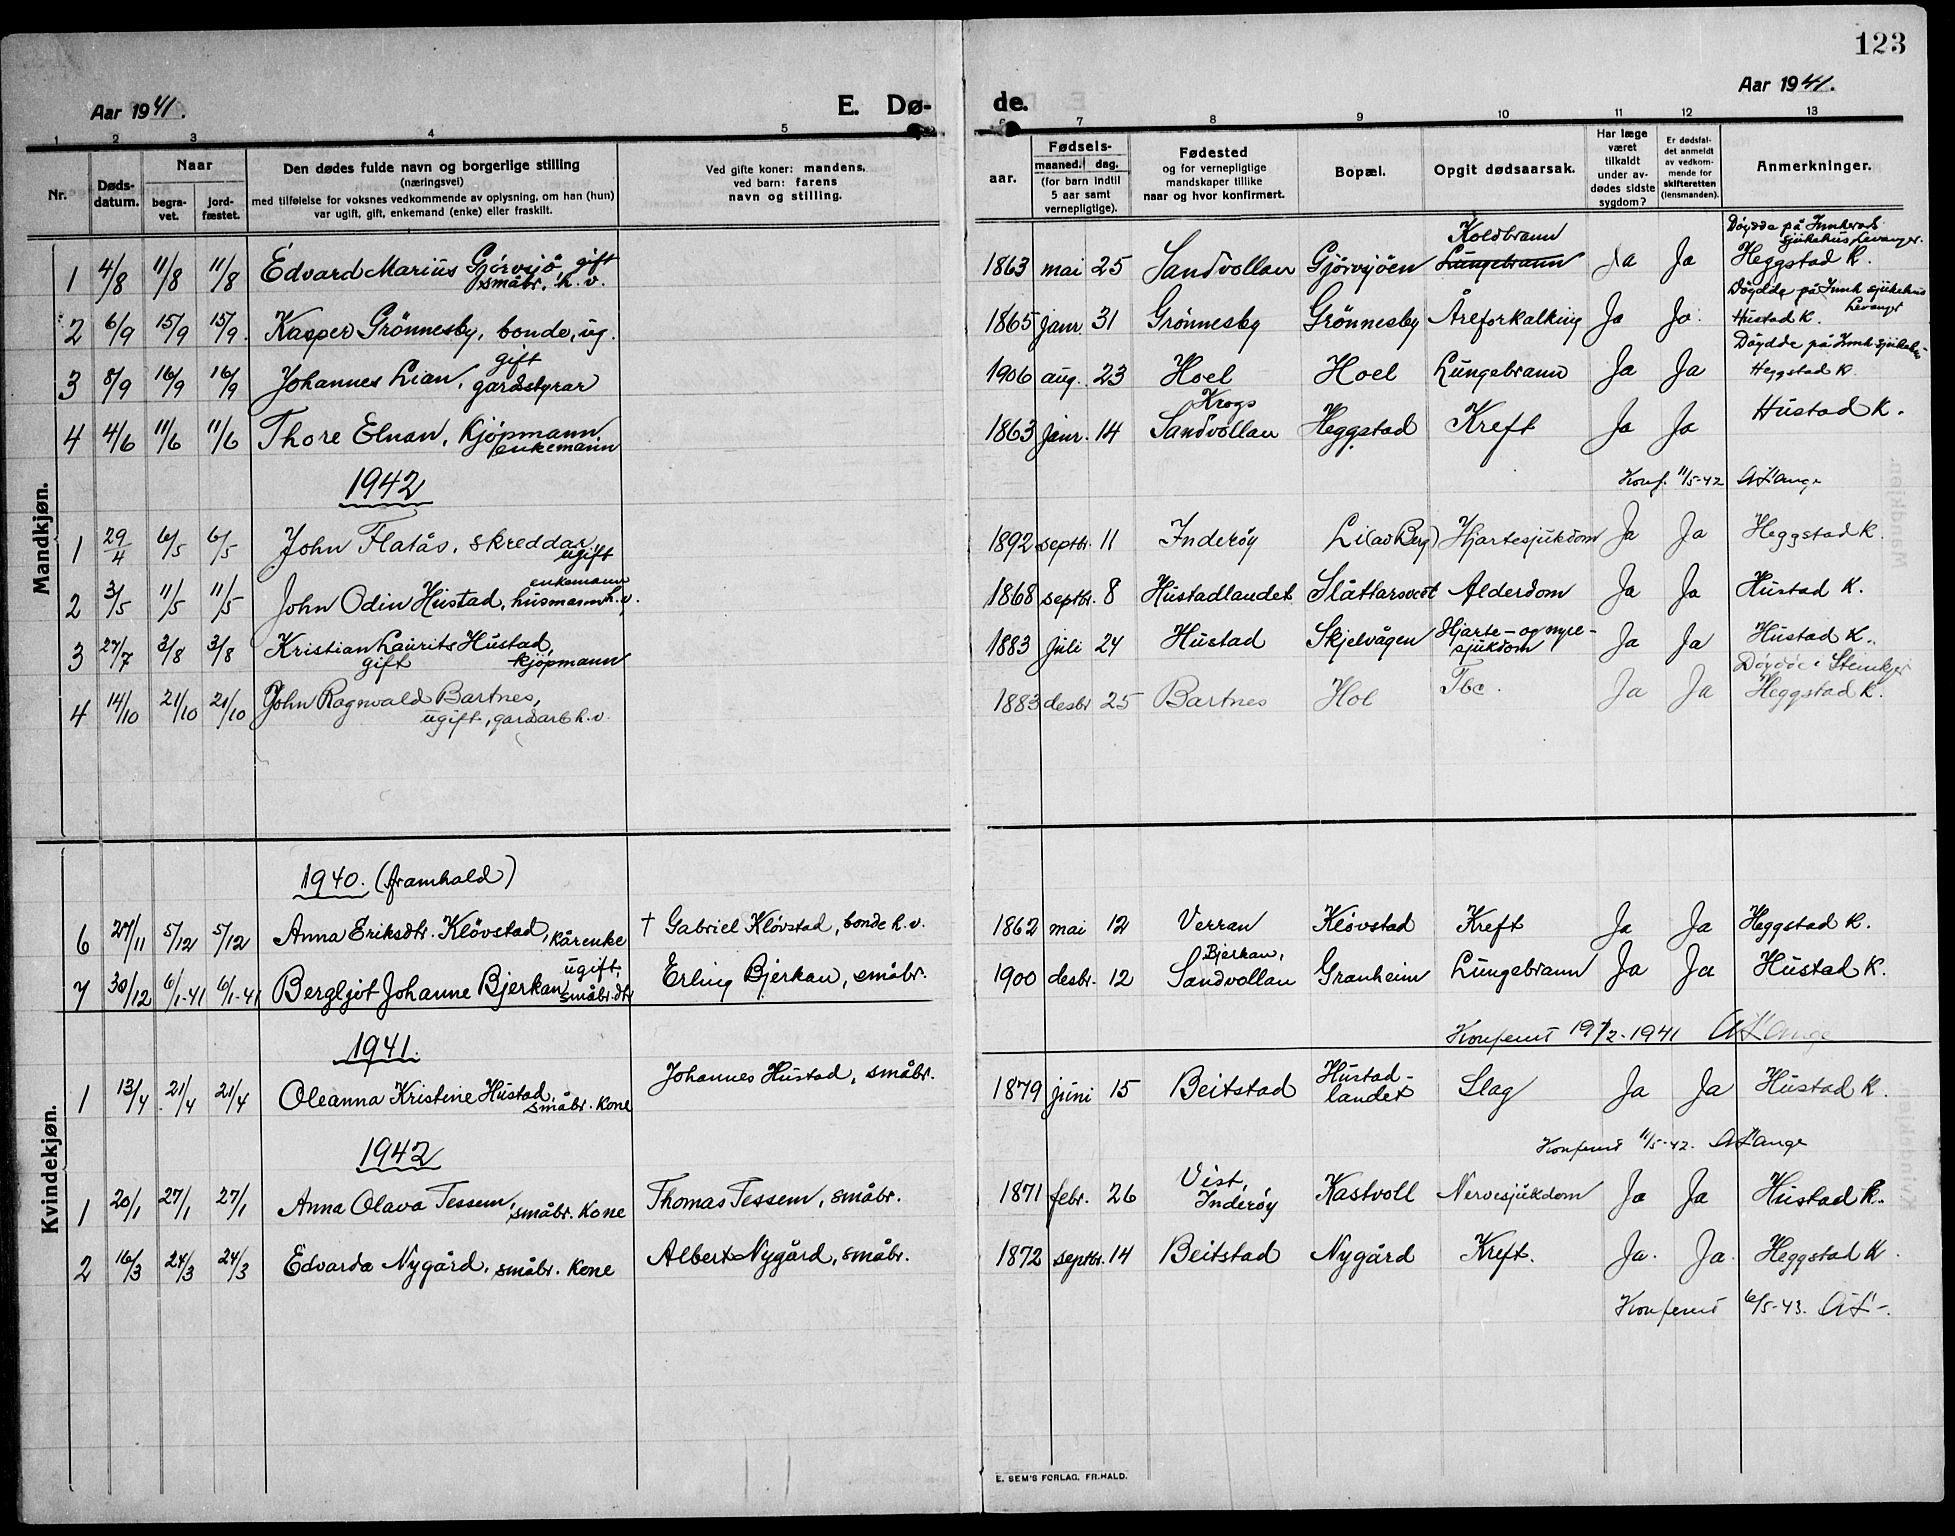 123
Aar 1941. E. Dø- de. Aar 1941.
1 2 3 4 5 6 7 8 9 10 11 12 13
Nr. Døds-datum. Naar begra-vet. jord-fæstet. Den dødes fulde navn og borgerlige stilling (næringsvei) med tilføielse for voksnes vedkommende av oplysning, om han (hun) var ugift, gift, enkemand (enke) eller fraskilt. Ved gifte koner: mandens, ved barn: farens navn og stilling. Fødsels- aar. maaned. dag. (for barn indtil 5 aar samt vernepligtige). Fødested og for vernepligtige mandskaper tillike naar og hvor konfirmert. Bopæl. Opgit dødsaarsak. Har læge været tilkaldt under av-dødes sidste sygdom? Er dødsfal-det anmeldt av vedkom-mende for skifteretten (lensmanden). Anmerkninger.
Mandkjøn.
1 4/8 11/8 11/8 Edvard Marius Gjörvsjö, gift småbr. h.v. 1863 mai 25 Sandvollan Gjörvsjöen Koldbrann Lungebrann Ja Ja Döydde på Innherad sjukehus, Levanger. Heggstad K.
2 6/9 15/9 15/9 Kasper Grönnesby, bonde, ug. 1865 janr. 31 Grönnesby Grönnesby Åreforkalking Ja Ja Döydde på Innh sjukehus Levanger Hustad K.
3 8/9 16/9 16/9 Johannes Lian, gift gardstyrar 1906 aug. 23 Hoel Hoel Lungebrann Ja Ja Döydde på Innh sjukehus Heggstad K.
4 4/6 11/6 11/6 Thore Elnan, Kjöpmann enkemann 1863 janr. 14 Krogs Sandvollan Heggstad Kreft Ja Ja Hustad K.
1942 Konf. 11/5-42 A Lange
1 29/4 6/5 6/5 John Flatås, skreddar ugift 1892 septbr. 11 Inderöy Li (av Berg) Hjartesjukdom Ja Ja Heggstad K.
2 3/5 11/5 11/5 John Odin Hustad, enkemann husmann h.v. 1868 septbr. 8 Hustadlandet Slåttarsvedt Alderdom Ja Ja Hustad K.
3 27/7 3/8 3/8 Kristian Laurits Hustad, gift kjöpmann 1883 juli 24 Hustad Skjelvågen Hjarte- og nyre-sjukdom Ja Ja Hustad K.
4 14/10 21/10 21/10 John Ragnvald Bartnes, ugift, gardarb h.v. 1883 desbr 25 Bartnes Hol Tbc. Ja Ja Döyde i Steinkjer Heggstad K.
Kvindekjøn.
1940. (framhald)
6 27/11 5/12 5/12 Anna Eriksdtr. Klövstad, kårenke † Gabriel Klövstad, bonde h.v. 1862 mai 12 Verran Klövstad Kreft Ja Ja Heggstad K.
7 30/12 6/1-41 6/1-41 Bergljot Johanne Bjerkan ugift, småbr.dtr Erling Bjerkan, småbr. 1900 desbr. 12 Bjerkan, Sandvollan Granheim Lungebrann Ja Ja Hustad K.
Konferert 19/2-1941 A Lange
1941.
1 13/4 21/4 21/4 Oleanna Kristine Hustad, småbr. kone Johannes Hustad, småbr. 1879 juni 15 Beitstad Hustad-landet Slag Ja Ja Hustad K.
1942 Konferert 11/5-42. A Lange
1 20/1 27/1 27/1 Anna Olava Tessem, småbr. kone Thomas Tessem, småbr. 1871 febr. 26 Vist, Inderöy Kastvoll Nervesjukdom Ja Ja Hustad K.
2 16/3 24/3 24/3 Edvarda Nygård, småbr. kone Albert Nygård, småbr. 1872 septbr. 14 Beitstad Nygård Kreft. Ja. Ja. Heggstad K.
Konferert 6/5-43. A L-.
E. SEM'S FORLAG, FR.HALD.